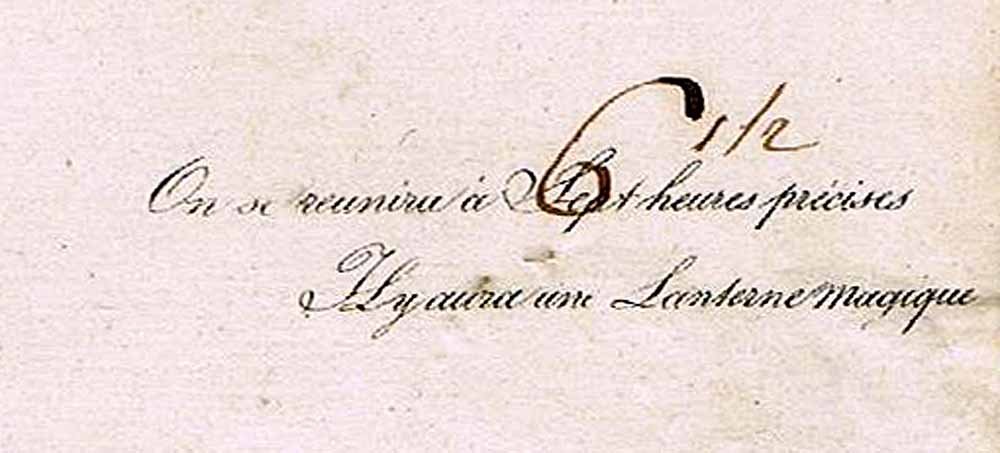 6 1/2
On se réunira à Sept heures précises
Il y aura une Lanterne magique